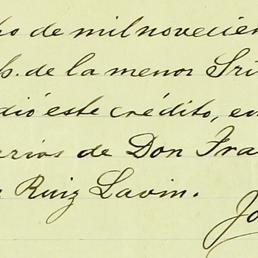 ho de mil novecien
p. de la menor Srt
dió este crédito, en
erios de Don Fra
Ruiz Lavin.
Jo